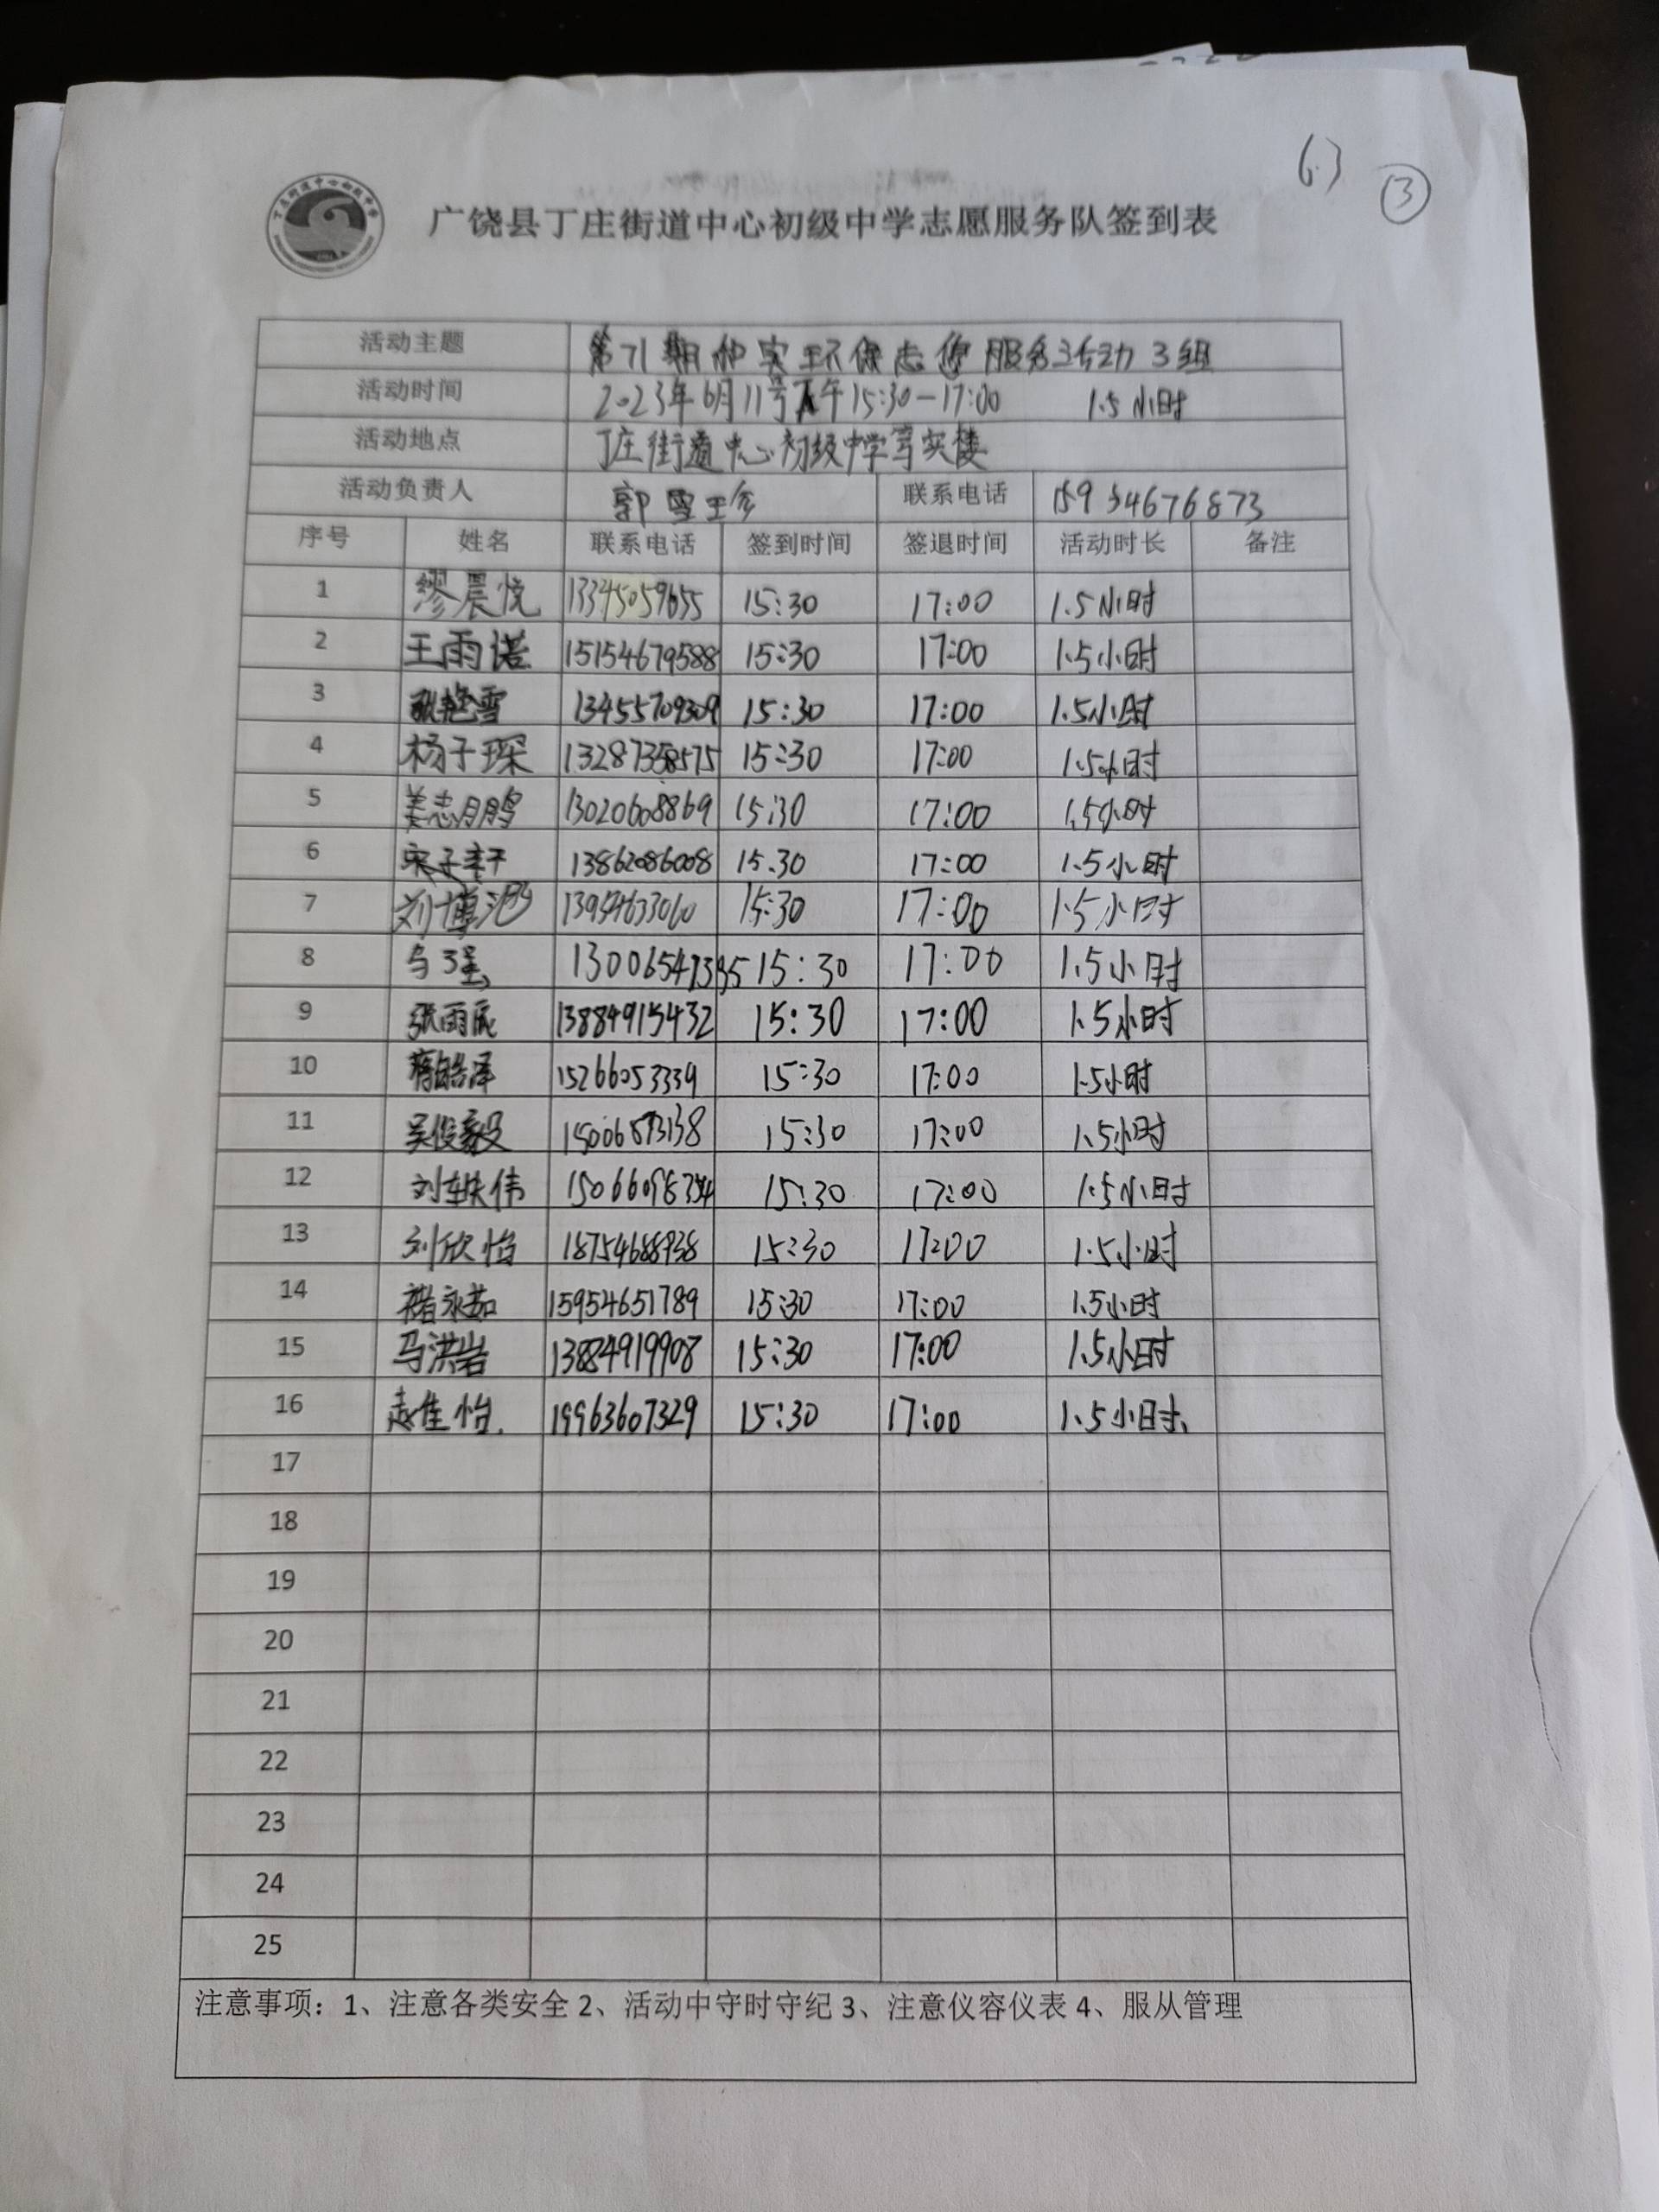 6.3 ③
广饶县丁庄街道中心初级中学志愿服务队签到表
活动主题 第71期和实环保志愿服务活动3组
活动时间 2023年6月11号下午15:30-17:00 1.5小时
活动地点 丁庄街道中心初级中学笃实楼
活动负责人 郭雪珍 联系电话 15954676873
序号 姓名 联系电话 签到时间 签退时间 活动时长 备注
1 缪晨悦 13345059655 15:30 17:00 1.5小时
2 王雨诺 15154679588 15:30 17:00 1.5小时
3 耿艳雪 13455709309 15:30 17:00 1.5小时
4 杨子琛 13287358575 15:30 17:00 1.5小时
5 姜志鹏 13020608869 15:30 17:00 1.5小时
6 宋子轩 13862086008 15.30 17:00 1.5小时
7 刘博池 13954633060 15:30 17:00 1.5小时
8 15:30 17:00 1.5小时
9 张雨辰 13884915432 15:30 17:00 1.5小时
10 蒋皓泽 15266053339 15:30 17:00 1.5小时
11 吴俊毅 15006873138 15:30 17:00 1.5小时
12 刘轶伟 15:30 17:00 1.5小时
13 刘欣怡 18754688938 15:30 17:00 1.5小时
14 褚永茹 15954651789 15:30 17:00 1.5小时
15 马洪岩 13884919908 15:30 17:00 1.5小时
16 赵佳怡. 19963607329 15:30 17:00 1.5小时、
17
18
19
20
21
22
23
24
25
注意事项：1、注意各类安全 2、活动中守时守纪 3、注意仪容仪表 4、服从管理